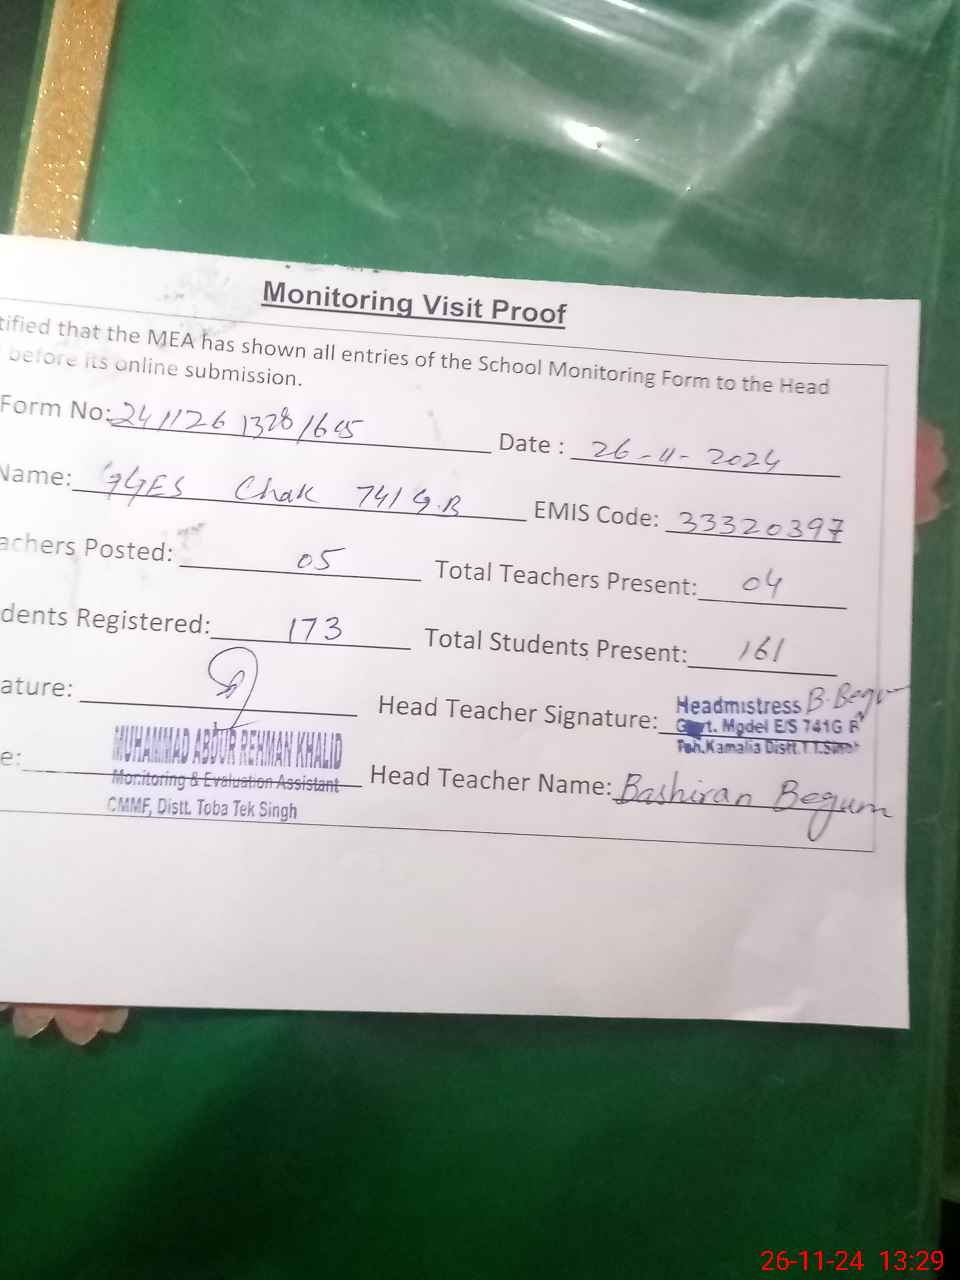 Monitoring Visit Proof
tified that the MEA has shown all entries of the School Monitoring Form to the Head
before its online submission.
Form No: 241126 1328 1645 Date : 26-11-2024
Name: GGES Chak 741 G.B EMIS Code: 33320397
achers Posted: 05 Total Teachers Present: 04
dents Registered: 173 Total Students Present: 161
ature: Head Teacher Signature: B.Begum
Headmistress
Govt. Model E/S 741G B
Teh.Kamalia Distt.T.T.Singh
MUHAMMAD ABDUR REHMAN KHALID
Monitoring & Evaluation Assistant
CMMF, Distt. Toba Tek Singh
e: Head Teacher Name: Bashiran Begum
26-11-24 13:29